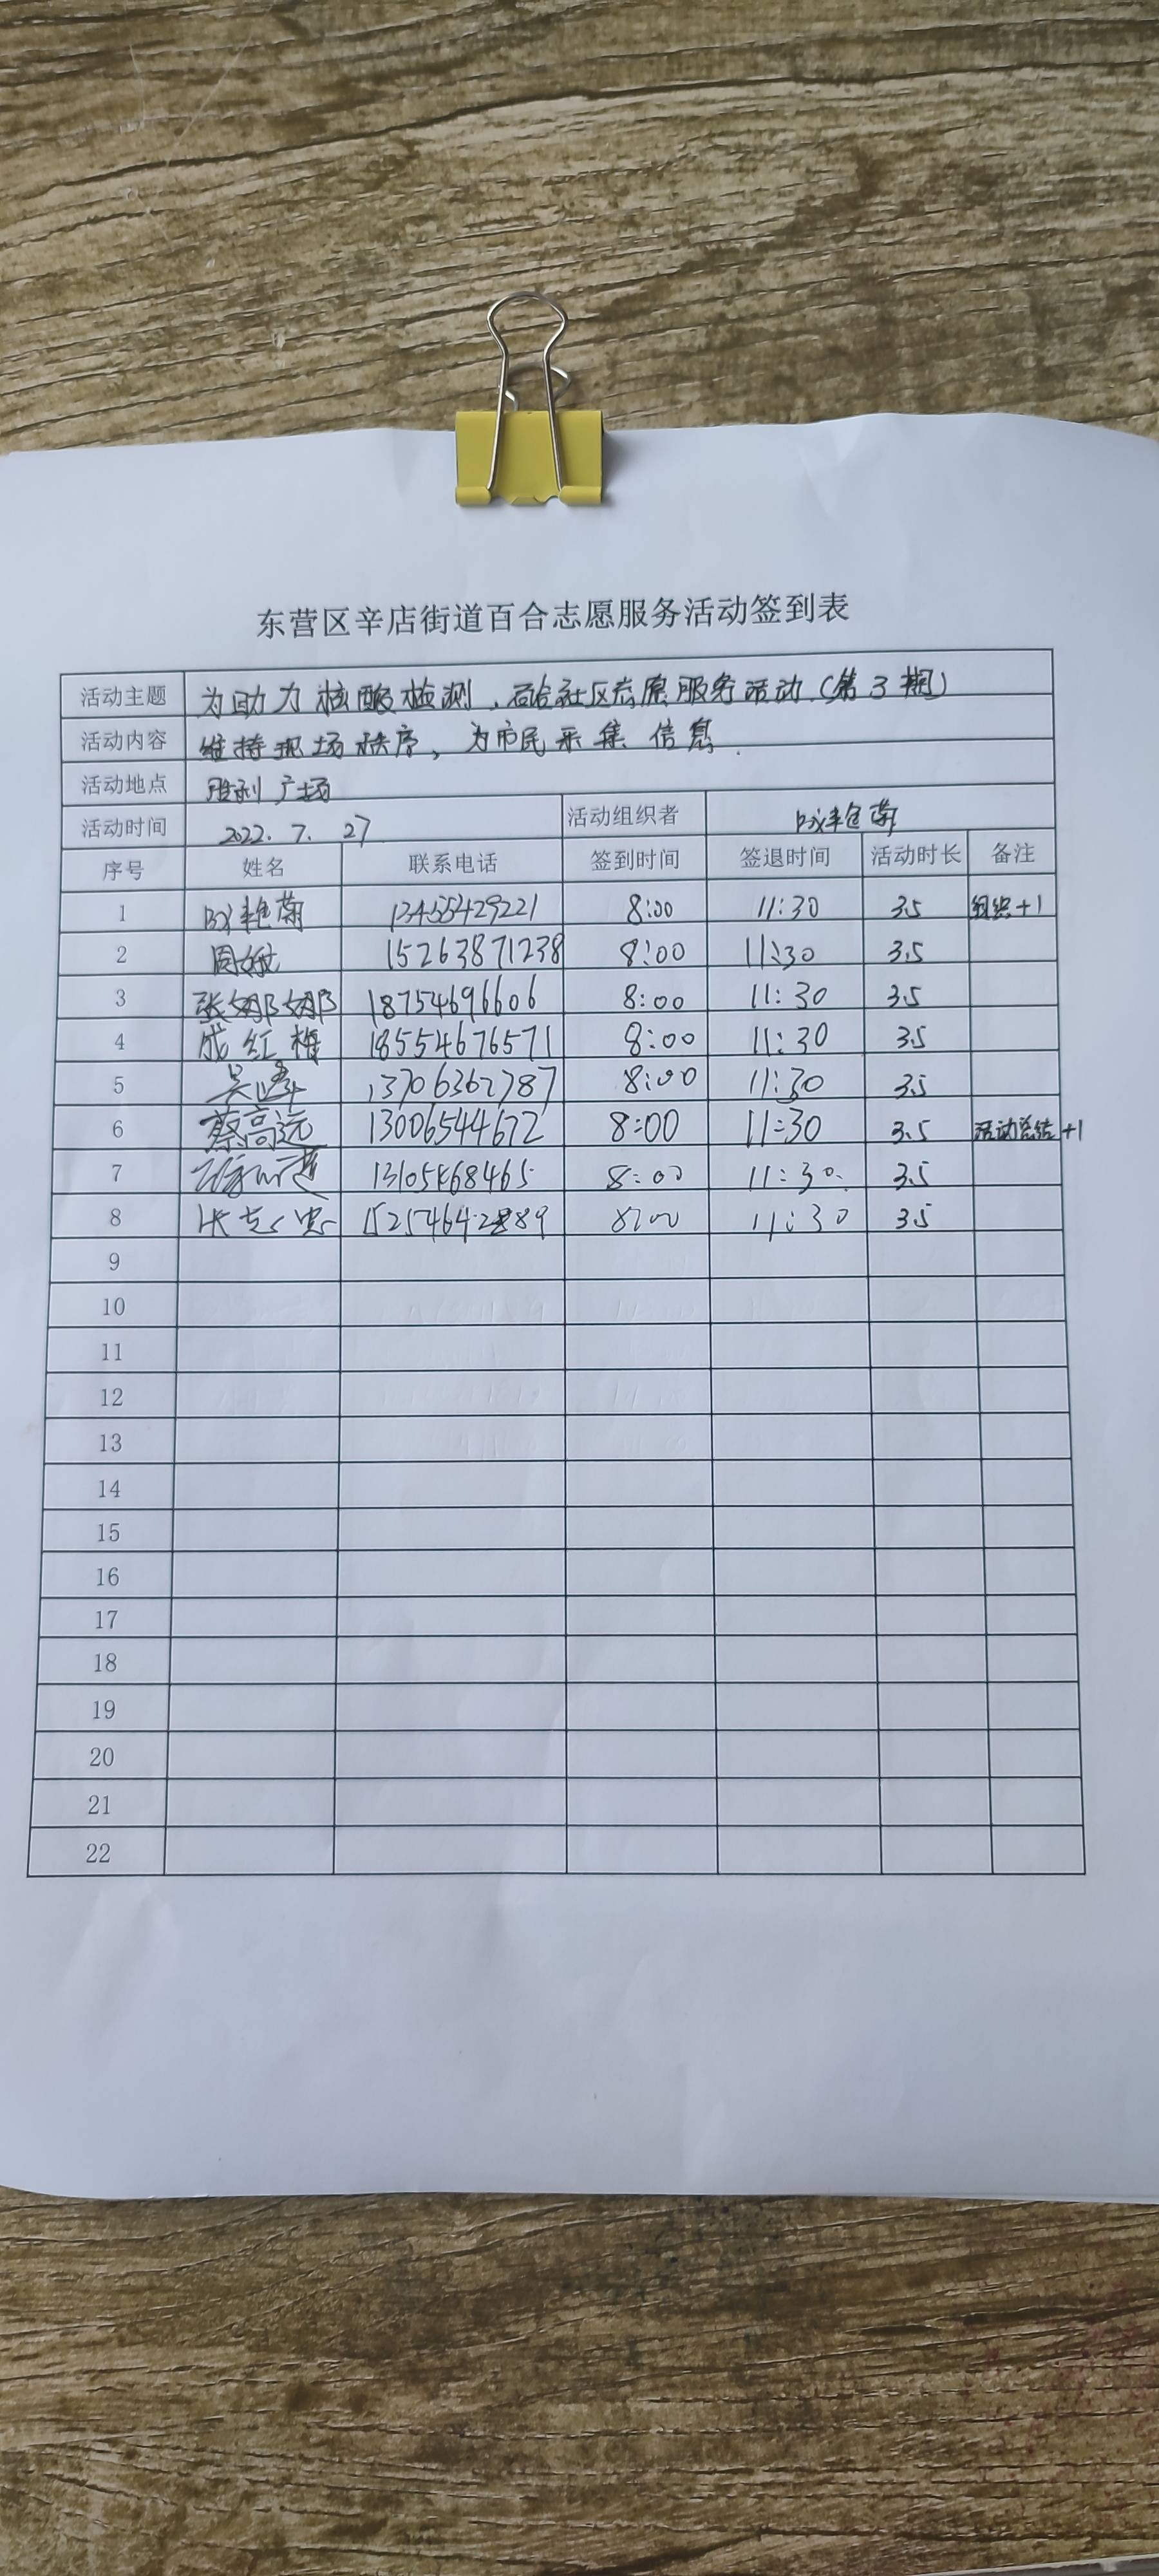 东营区辛店街道百合志愿服务活动签到表
活动主题 为助力核酸检测，百合社区志愿服务活动（第3期）
活动内容 维持现场秩序，为市民采集信息.
活动地点 胜利广场
活动时间 2022.7.27 活动组织者
序号 姓名 联系电话 签到时间 签退时间 活动时长 备注
1 13455429221 8:00 11:30 3.5 组织+1
2 15263871238 8:00 11:30 3.5
3 张娜娜 18754696606 8:00 11:30 3.5
4 成红梅 18554676571 8:00 11:30 3.5
5 吴峰 13706362787 8:00 11:30 3.5
6 蔡高远 13006544672 8:00 11:30 3.5 活动总结+1
7 13105468465 8:00 11:30 3.5
8 8:00 11:30 3.5
9
10
11
12
13
14
15
16
17
18
19
20
21
22